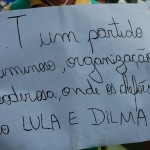 T um partido
iminoso, organização
oderosa, onde os chefes
ão LULA E DILMA